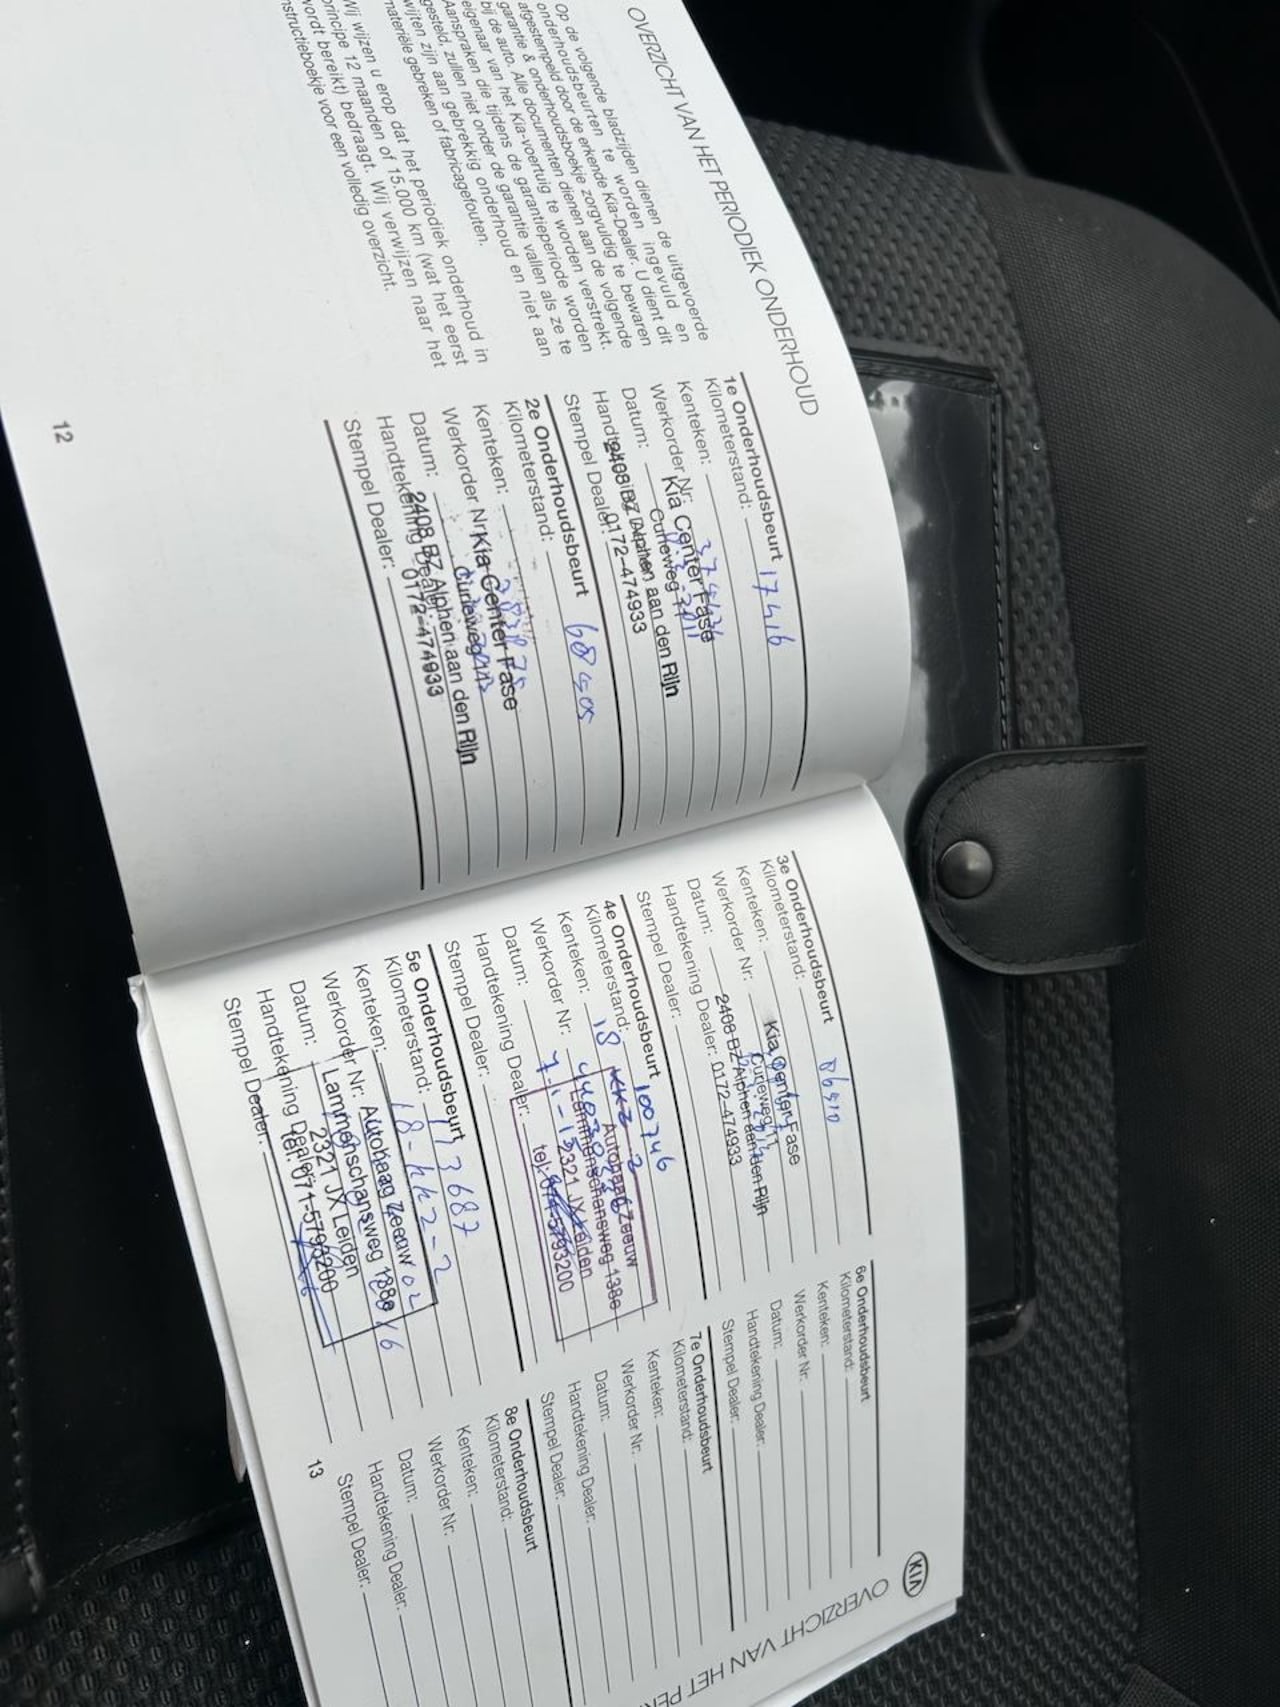 OVERZICHT VAN HET PERIODIEK ONDERHOUD
Op de volgende bladzijden dienen de uitgevoerde
onderhoudsbeurten te worden ingevuld en
afgestempeld door de erkende Kia-Dealer. U dient dit
garantie & onderhoudsboekje zorgvuldig te bewaren
bij de auto. Alle documenten dienen aan de volgende
eigenaar van het Kia-voertuig te worden verstrekt.
Aanspraken die tijdens de garantieperiode worden
gesteld, zullen niet onder de garantie vallen als ze te
wijten zijn aan gebrekkig onderhoud en niet aan
materiële gebreken of fabricagefouten.
Wij wijzen u erop dat het periodiek onderhoud in
principe 12 maanden of 15.000 km (wat het eerst
wordt bereikt) bedraagt. Wij verwijzen naar het
instructieboekje voor een volledig overzicht.
12
1e Onderhoudsbeurt
Kilometerstand: 17416
Kenteken:
Werkorder Nr:
Datum:
Handtekening Dealer:
Stempel Dealer:
Kia Center Fase
Curieweg 11
2408 BZ Alphen aan den Rijn
0172-474933
2e Onderhoudsbeurt
Kilometerstand:
Kenteken:
Werkorder Nr:
Datum:
Handtekening Dealer:
Stempel Dealer:
Kia Center Fase
Curieweg 11
2408 BZ Alphen aan den Rijn
0172-474933
3e Onderhoudsbeurt
Kilometerstand:
Kenteken:
Werkorder Nr:
Datum:
Handtekening Dealer:
Stempel Dealer:
Kia Center Fase
Curieweg 11
2408 BZ Alphen aan den Rijn
0172-474933
4e Onderhoudsbeurt
Kilometerstand: 100746
Kenteken: 18 KKZ 2
Werkorder Nr:
Datum: 7-1-15
Handtekening Dealer:
Stempel Dealer:
Autohaag Zeeuw
Lammenschansweg 138e
2321 JX Leiden
tel. 071-5793200
5e Onderhoudsbeurt
Kilometerstand: 113687
Kenteken: 18-KKZ-2
Werkorder Nr:
Datum:
Handtekening Dealer:
Stempel Dealer:
Autohaag Zeeuw
Lammenschansweg 138e
2321 JX Leiden
tel. 071-5793200
13
KIA
OVERZICHT VAN HET
6e Onderhoudsbeurt
Kilometerstand:
Kenteken:
Werkorder Nr:
Datum:
Handtekening Dealer:
Stempel Dealer:
7e Onderhoudsbeurt
Kilometerstand:
Kenteken:
Werkorder Nr:
Datum:
Handtekening Dealer:
Stempel Dealer:
8e Onderhoudsbeurt
Kilometerstand:
Kenteken:
Werkorder Nr:
Datum:
Handtekening Dealer:
Stempel Dealer: